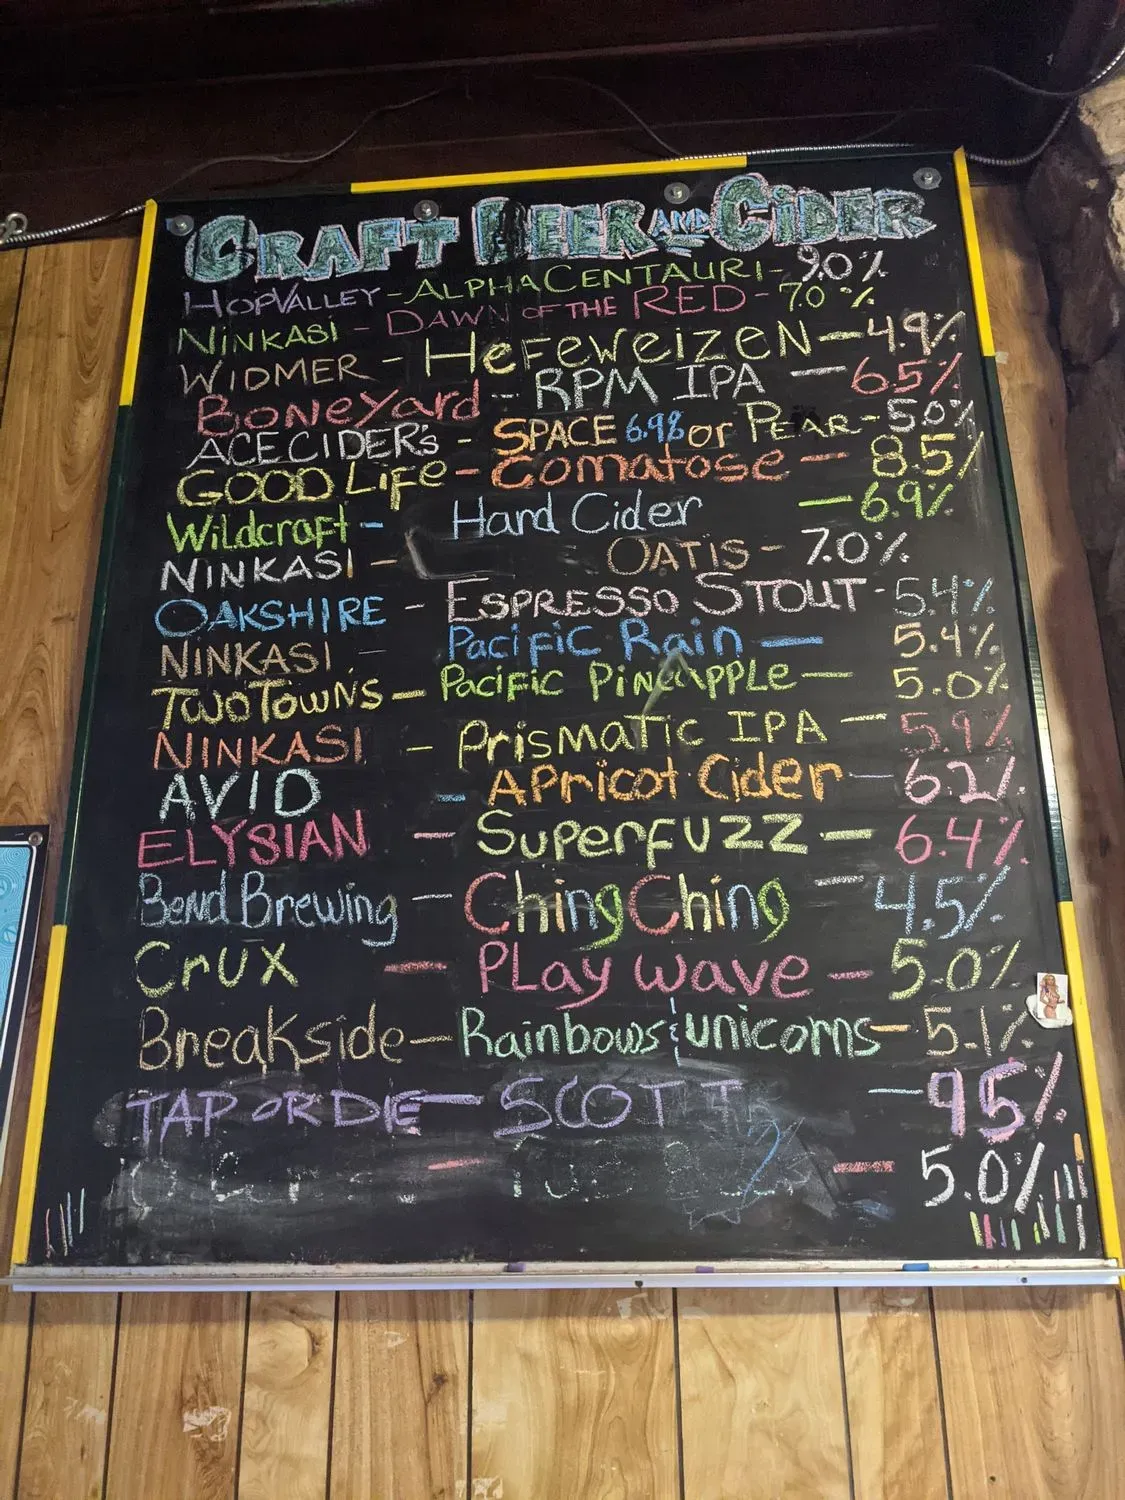 CRAFT BEER AND CIDER
HOPVALLEY - ALPHACENTAURI - 9.0%
NINKASI - DAWN OF THE RED - 7.0%
WIDMER - HEFEWEIZEN - 4.9%
BONEYARD - RPM IPA - 6.5%
ACE CIDER'S - SPACE 6.9% or PEAR - 5.0%
GOOD LIFE - Comatose - 8.5%
Wildcraft - Hard Cider - 6.9%
NINKASI - OATIS - 7.0%
OAKSHIRE - ESPRESSO STOUT - 5.4%
NINKASI - Pacific Rain - 5.4%
TWO TOWNS - Pacific PINEAPPLE - 5.0%
NINKASI - PRISMATIC IPA - 5.9%
AVID - APricot Cider - 6.2%
ELYSIAN - SUPERFUZZ - 6.4%
Bend Brewing - Ching Ching - 4.5%
CRUX - PLay wave - 5.0%
Breakside - Rainbows & unicorns - 5.1%
TAP OR DIE - SCOTT - 95%
- 5.0%